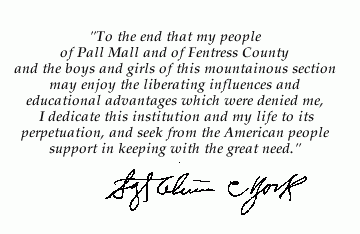 "To the end that my people
of Pall Mall and of Fentress County
and the boys and girls of this mountainous section
may enjoy the liberating influences and
educational advantages which were denied me,
I dedicate this institution and my life to its
perpetuation, and seek from the American people
support in keeping with the great need."
Sgt Alvin C York